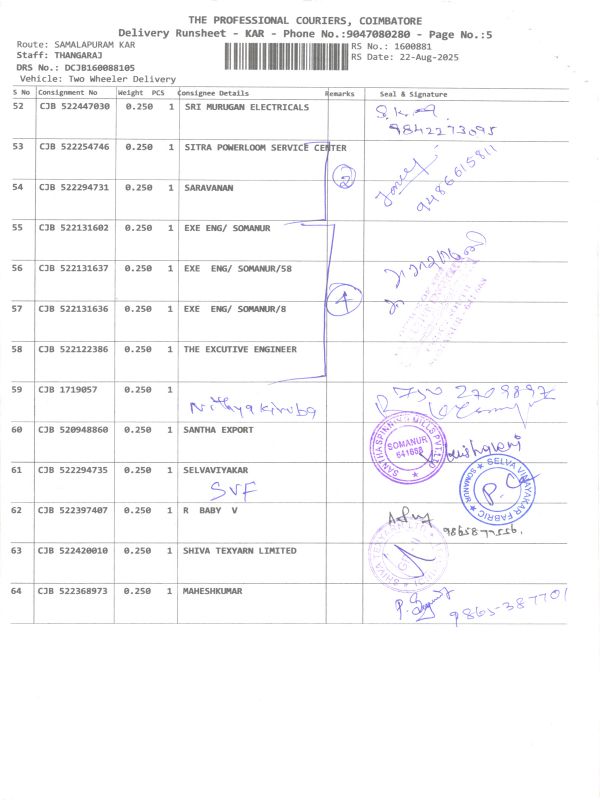 THE PROFESSIONAL COURIERS, COIMBATORE
Delivery Runsheet - KAR - Phone No.:9047080280 - Page No.:5
Route: SAMALAPURAM KAR RS No.: 1600881
Staff: THANGARAJ RS Date: 22-Aug-2025
DRS No.: DCJB160088105
Vehicle: Two Wheeler Delivery
S No Consignment No Weight PCS Consignee Details Remarks Seal & Signature
52 CJB 522447030 0.250 1 SRI MURUGAN ELECTRICALS S.K.A.
9842273095
53 CJB 522254746 0.250 1 SITRA POWERLOOM SERVICE CENTER
2 9486615811
54 CJB 522294731 0.250 1 SARAVANAN
55 CJB 522131602 0.250 1 EXE ENG/ SOMANUR
56 CJB 522131637 0.250 1 EXE ENG/ SOMANUR/58
57 CJB 522131636 0.250 1 EXE ENG/ SOMANUR/8 4
58 CJB 522122386 0.250 1 THE EXCUTIVE ENGINEER
59 CJB 1719057 0.250 1
Nithyakiruba
60 CJB 520948860 0.250 1 SANTHA EXPORT
SANTHA SPINNING MILLS PVT. LTD
SOMANUR
641668
61 CJB 522294735 0.250 1 SELVAVIYAKAR
SVF
SELVA VINAYAKAR FABRIC
SOMANUR
62 CJB 522397407 0.250 1 R BABY V
63 CJB 522420010 0.250 1 SHIVA TEXYARN LIMITED
SHIVA TEXYARN LTD
64 CJB 522368973 0.250 1 MAHESHKUMAR
9865-387701